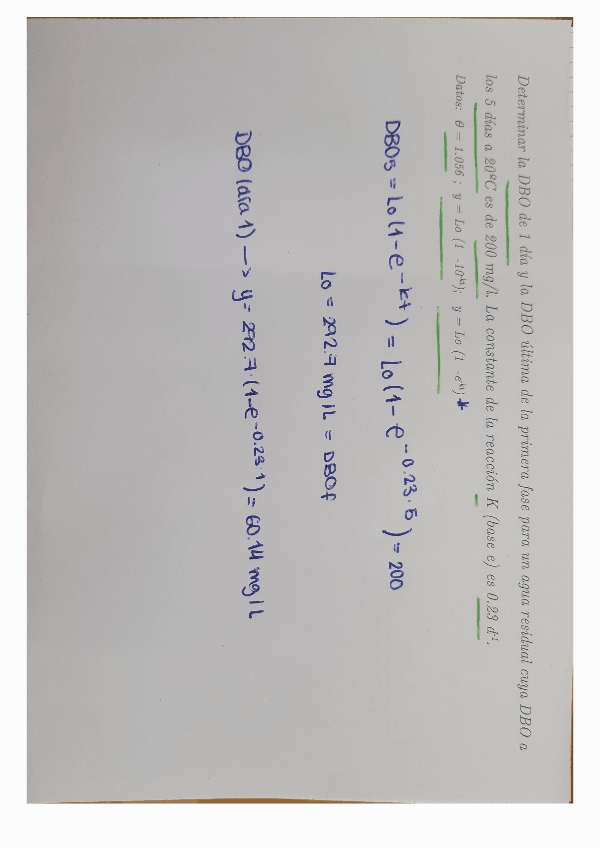 Determinar la DBO de 1 día y la DBO última de la primera fase para un agua residual cuya DBO a
los 5 días a 20ºC es de 200 mg/l. La constante de la reacción K (base e) es 0,23 d⁻¹.
Datos: θ = 1.056 ; y = Lo (1 -10ᵏᵗ); y = Lo (1 -eᵏᵗ) *
DBO5 = Lo (1 - e^-kt) = Lo (1 - e^-0.23·5) = 200
Lo = 292.7 mg/L = DBOf
DBO (día 1) —> y = 292.7·(1-e^-0.23·1) = 60.14 mg/L